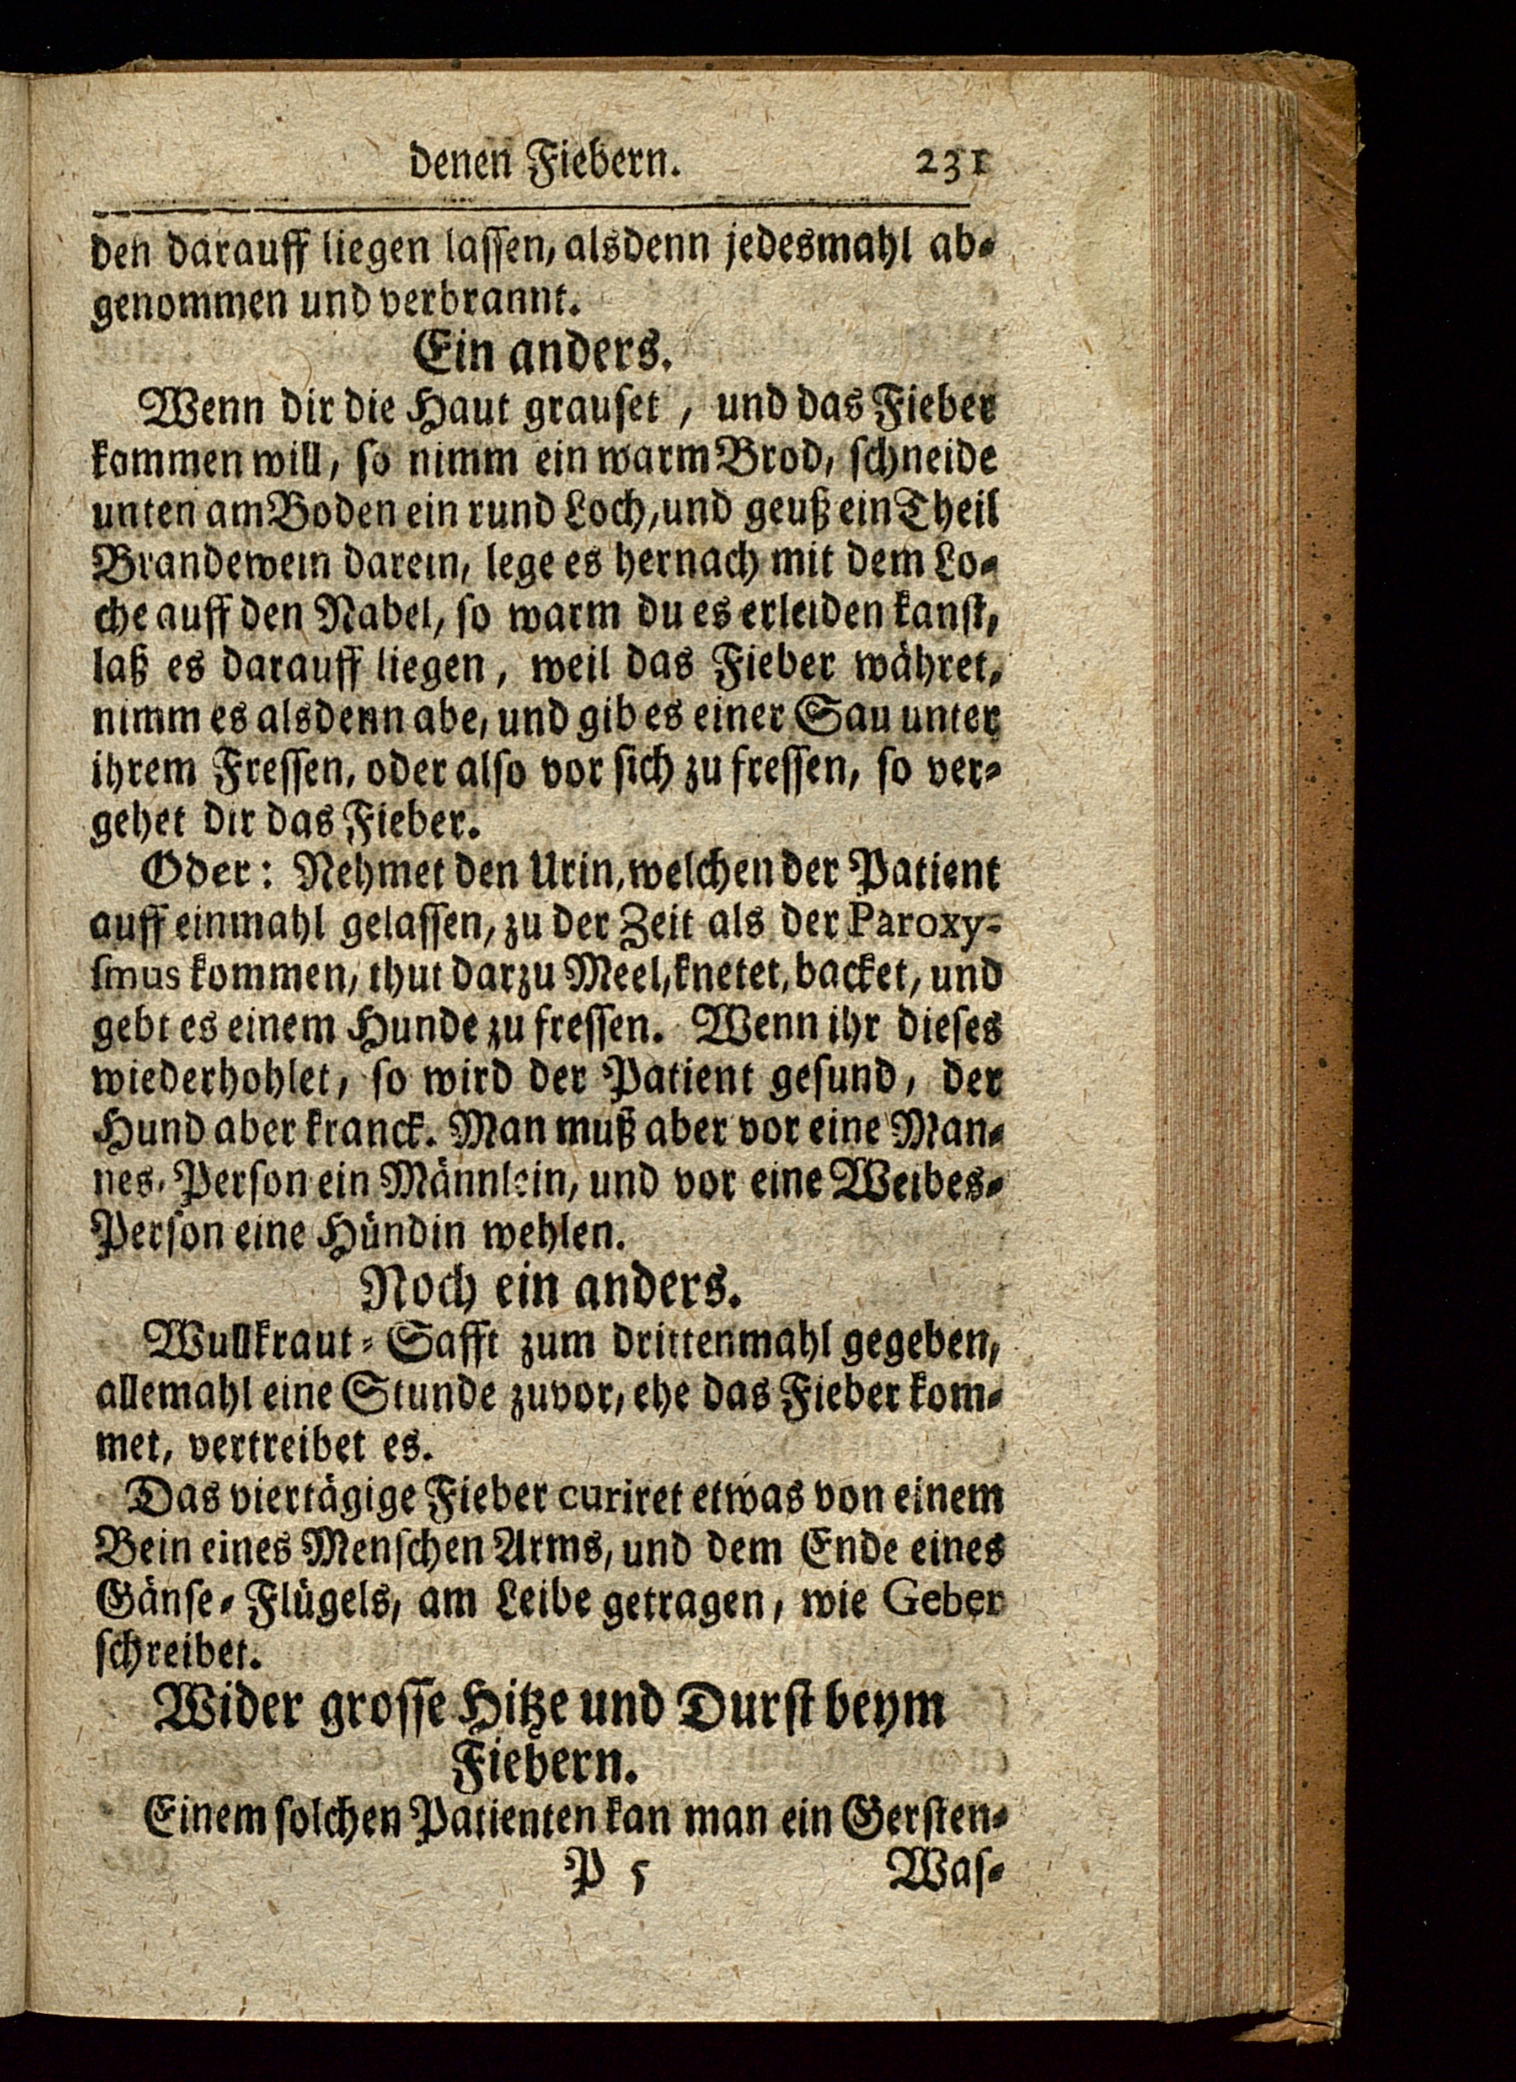 denen Fiebern. 231
den darauff liegen lassen, alsdenn jedesmahl ab-
genommen und verbrannt.
Ein anders.
Wenn dir die Haut grauset, und das Fieber
kommen will, so nimm ein warm Brod, schneide
unten am Boden ein rund Loch, und geuß ein Theil
Brandewein darein, lege es hernach mit dem Lo-
che auff den Nabel, so warm du es erleiden kanst,
laß es darauff liegen, weil das Fieber währet,
nimm es alsdenn abe, und gib es einer Sau unter
ihrem Fressen, oder also vor sich zu fressen, so ver-
gehet dir das Fieber.
Oder: Nehmet den Urin, welchen der Patient
auff einmahl gelassen, zu der Zeit als der Paroxy-
smus kommen, thut darzu Meel, knetet, backet, und
gebt es einem Hunde zu fressen. Wenn ihr dieses
wiederhohlet, so wird der Patient gesund, der
Hund aber kranck. Man muß aber vor eine Man-
nes-Person ein Männlein, und vor eine Weibes-
Person eine Hündin wehlen.
Noch ein anders.
Wullkraut-Safft zum drittenmahl gegeben,
allemahl eine Stunde zuvor, ehe das Fieber kom-
met, vertreibet es.
Das viertägige Fieber curiret etwas von einem
Bein eines Menschen Arms, und dem Ende eines
Gänse-Flügels, am Leibe getragen, wie Geber
schreibet.
Wider grosse Hitze und Durst beym
Fiebern.
Einem solchen Patienten kan man ein Gersten-
P 5 Was-